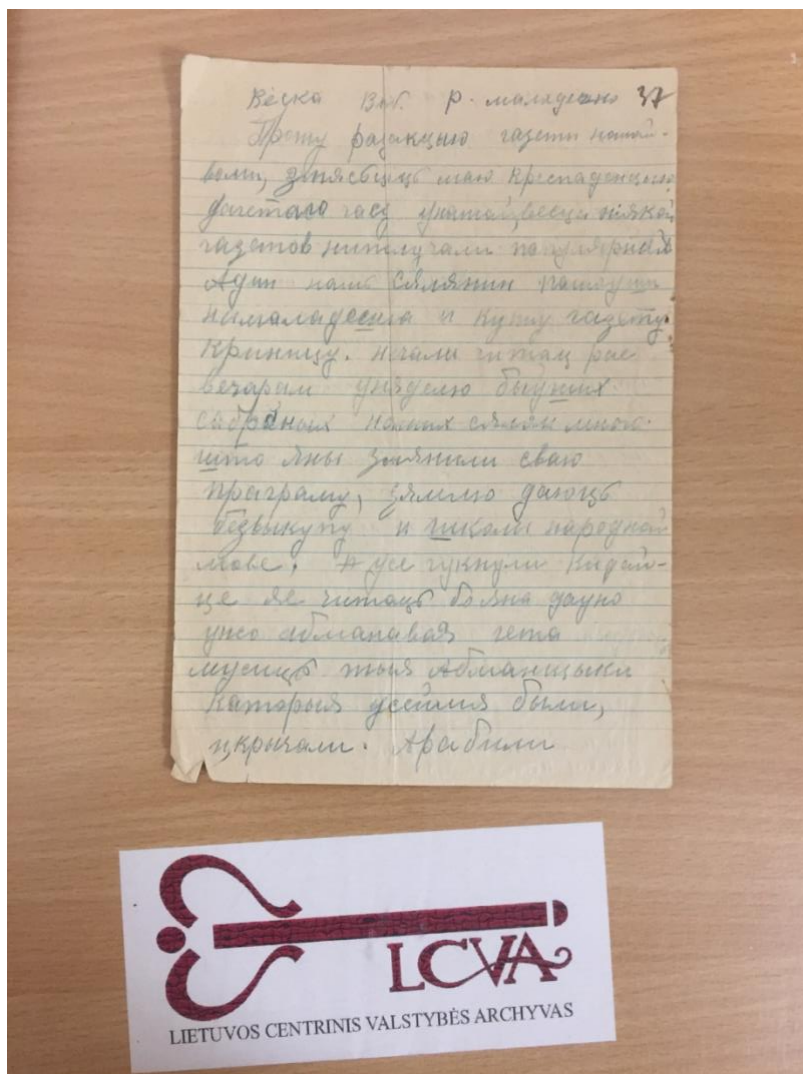 Вёска Выг. р. маладечно 37
Прошу разакцыю газети нашай-
воли, змясьціць маю креспаденцыю,
дагетаго часу унашайвесци ніякой
газетов ниглучали популярнай
Адин наш сялянин пашоуши
нималадесна и купиу газету
криницу. начали читац рас
вечарам унядзелю быуших
сабраных нашых сялян много.
што яны змянили сваю
праграму, зямлю даюць
безвыкупу и школи народнай
мове. А усе гукнули кидай-
це яе читаць бо яна дауно
ужо абманавая гета
мусиць тыя Абманщыки
каторыя усеймя были,
икрычали. Арабили
LCVA
LIETUVOS CENTRINIS VALSTYBĖS ARCHYVAS